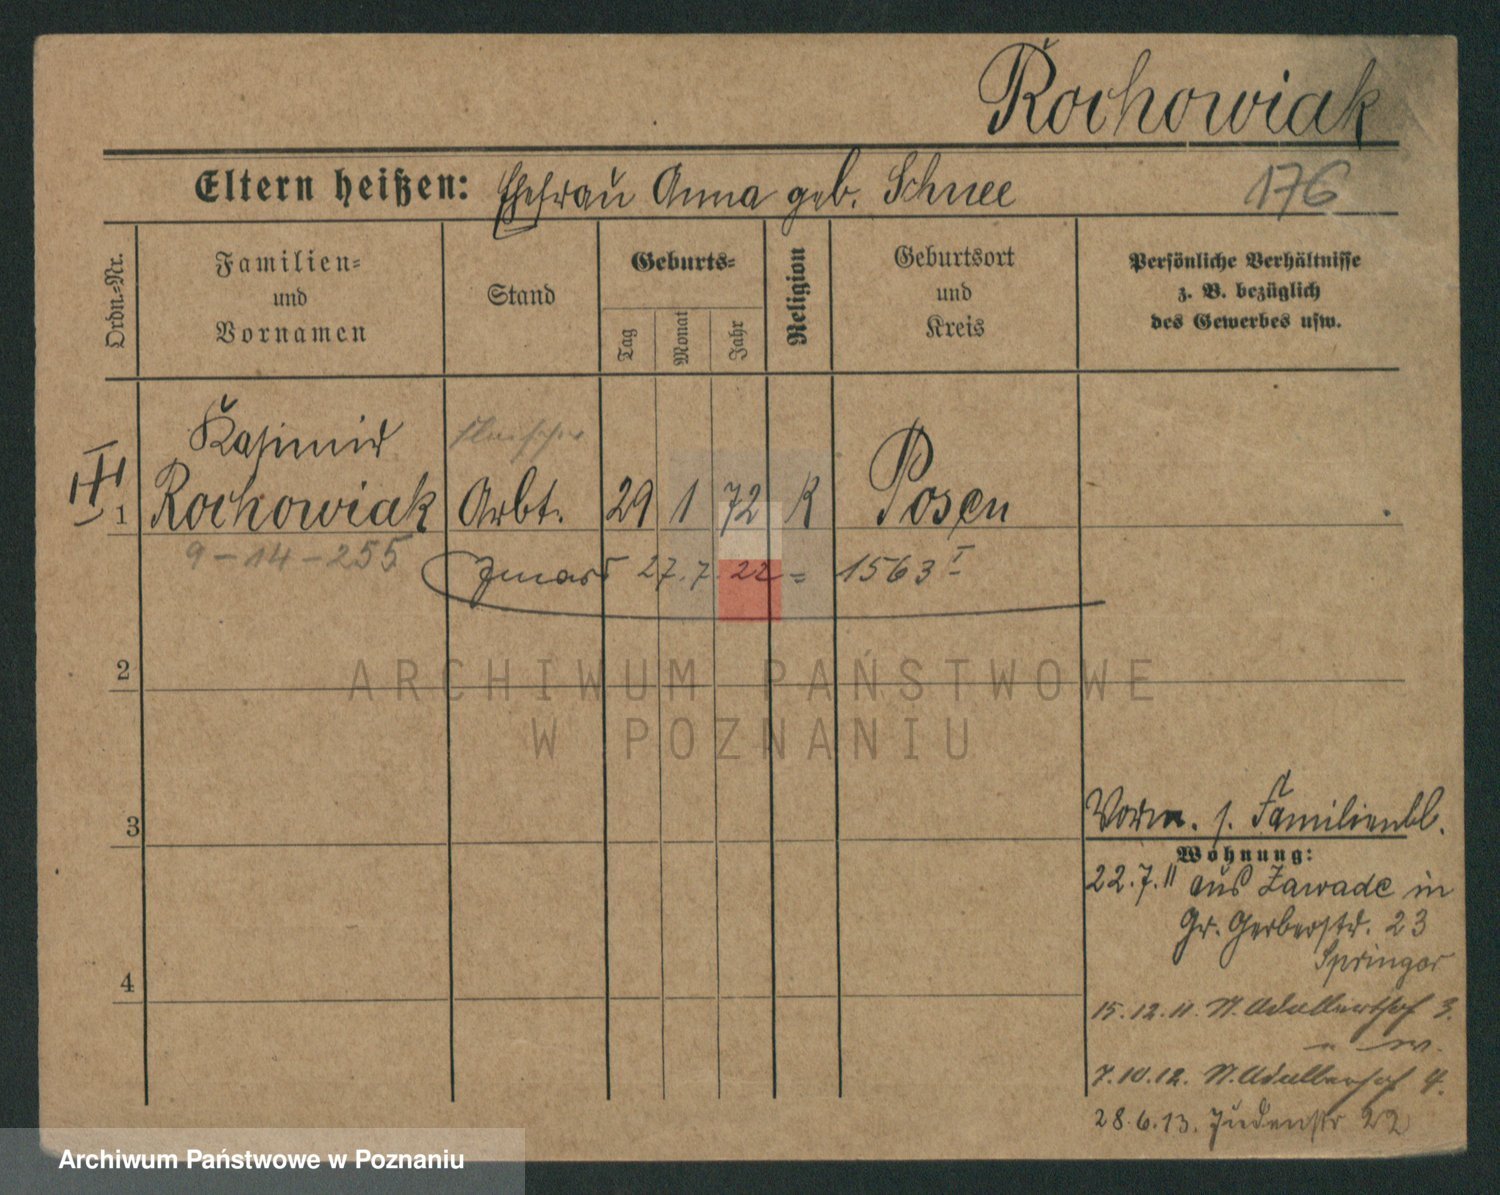 Rochowiak
Eltern heißen: Ehefrau Anna geb. Schnee
176
Ordn.-Nr.
Familien-
und
Vornamen
Stand
Geburts-
Tag
Monat
Jahr
Religion
Geburtsort
und
Kreis
Persönliche Verhältnisse
z. B. bezüglich
des Gewerbes usw.
Kasimir
Fleischer
III
1 Rochowiak Arbt. 29 1 72 K Posen
9-14-255
zmarł 27.7.22 = 1563 I
2
ARCHIWUM PAŃSTWOWE
W POZNANIU
3
Vorm. s. Familienbl.
Wohnung:
22.7.11 aus Zawade in
Gr. Gerberstr. 23
Springer
4
15.12.11. St. Adalberthof 3.
7.10.12. St. Adalberthof 4.
28.6.13. Judenstr 22
Archiwum Państwowe w Poznaniu